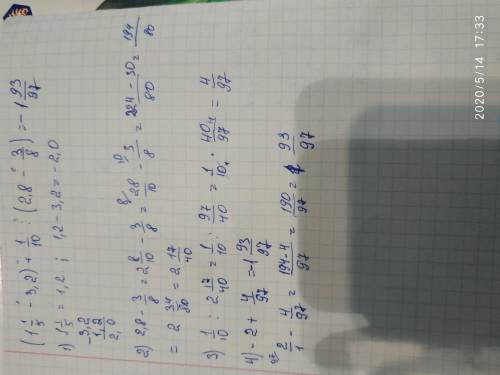 (1 1/5 - 3,2) + 1/10 : (2,8 - 3/8) = -1 93/97
1) 1 1/5 = 1,2 ; 1,2 - 3,2 = -2,0
- 3,2
1,2
2,0
2) 2,8 - 3/8 = 2 8/10 - 3/8 = 28/10 - 3/8 = 224 - 30/80 = 194/80
= 2 34/80 = 2 17/40
3) 1/10 : 2 17/40 = 1/10 : 97/40 = 1/10 · 40/97 = 4/97
4) -2 + 4/97 = -1 93/97
2/1 - 4/97 = 194-4/97 = 190/97 = 1 93/97
2020/5/14 13:33